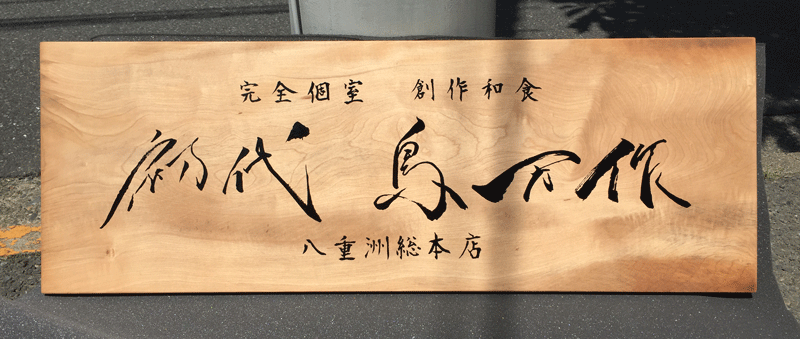 完全個室　創作和食
初代　鳥万作
八重洲総本店